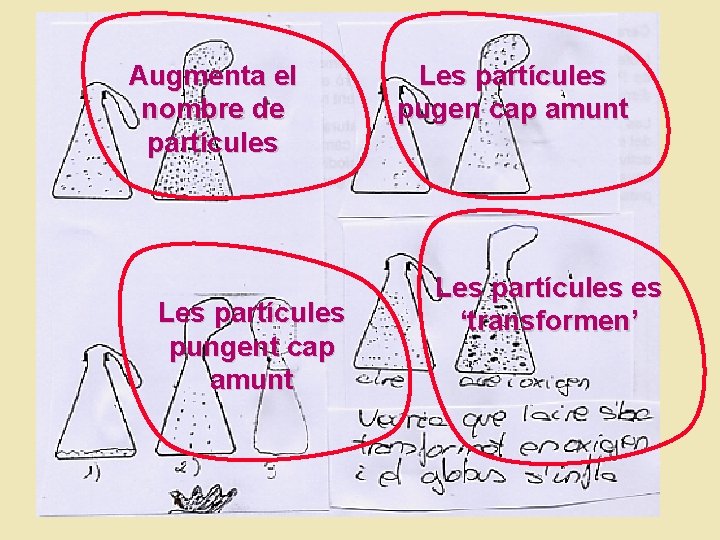 Augmenta el
nombre de
partícules
Les partícules
pugen cap amunt
Les partícules
pungent cap
amunt
1)
2)
3
Les partícules es
‘transformen’
aire
aire oxigen
Veuria que l'aire s'ha
transformat en oxigen
i el globus s'infla